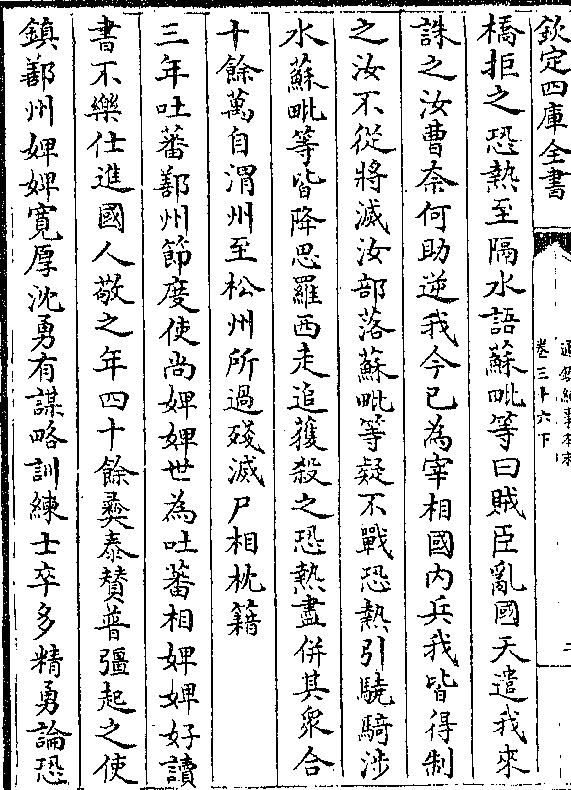 欽定四庫全書
通鑑紀事本末
卷三十六下
橋拒之恐熱至隔水語蘇毗等曰賊臣亂國天遣我來
誅之汝曹奈何助逆我今已為宰相國内兵我皆得制
之汝不從將滅汝部落蘇毗等疑不戰恐熱引驍騎涉
水蘇毗等皆降思羅西走追獲殺之恐熱盡併其衆合
十餘萬自渭州至松州所過殘滅尸相枕籍
三年吐蕃鄯州節度使尚婢婢世為吐蕃相婢婢好讀
書不樂仕進國人敬之年四十餘彞泰贊普彊起之使
鎮鄯州婢婢寛厚沈勇有謀略訓練士卒多精勇論恐